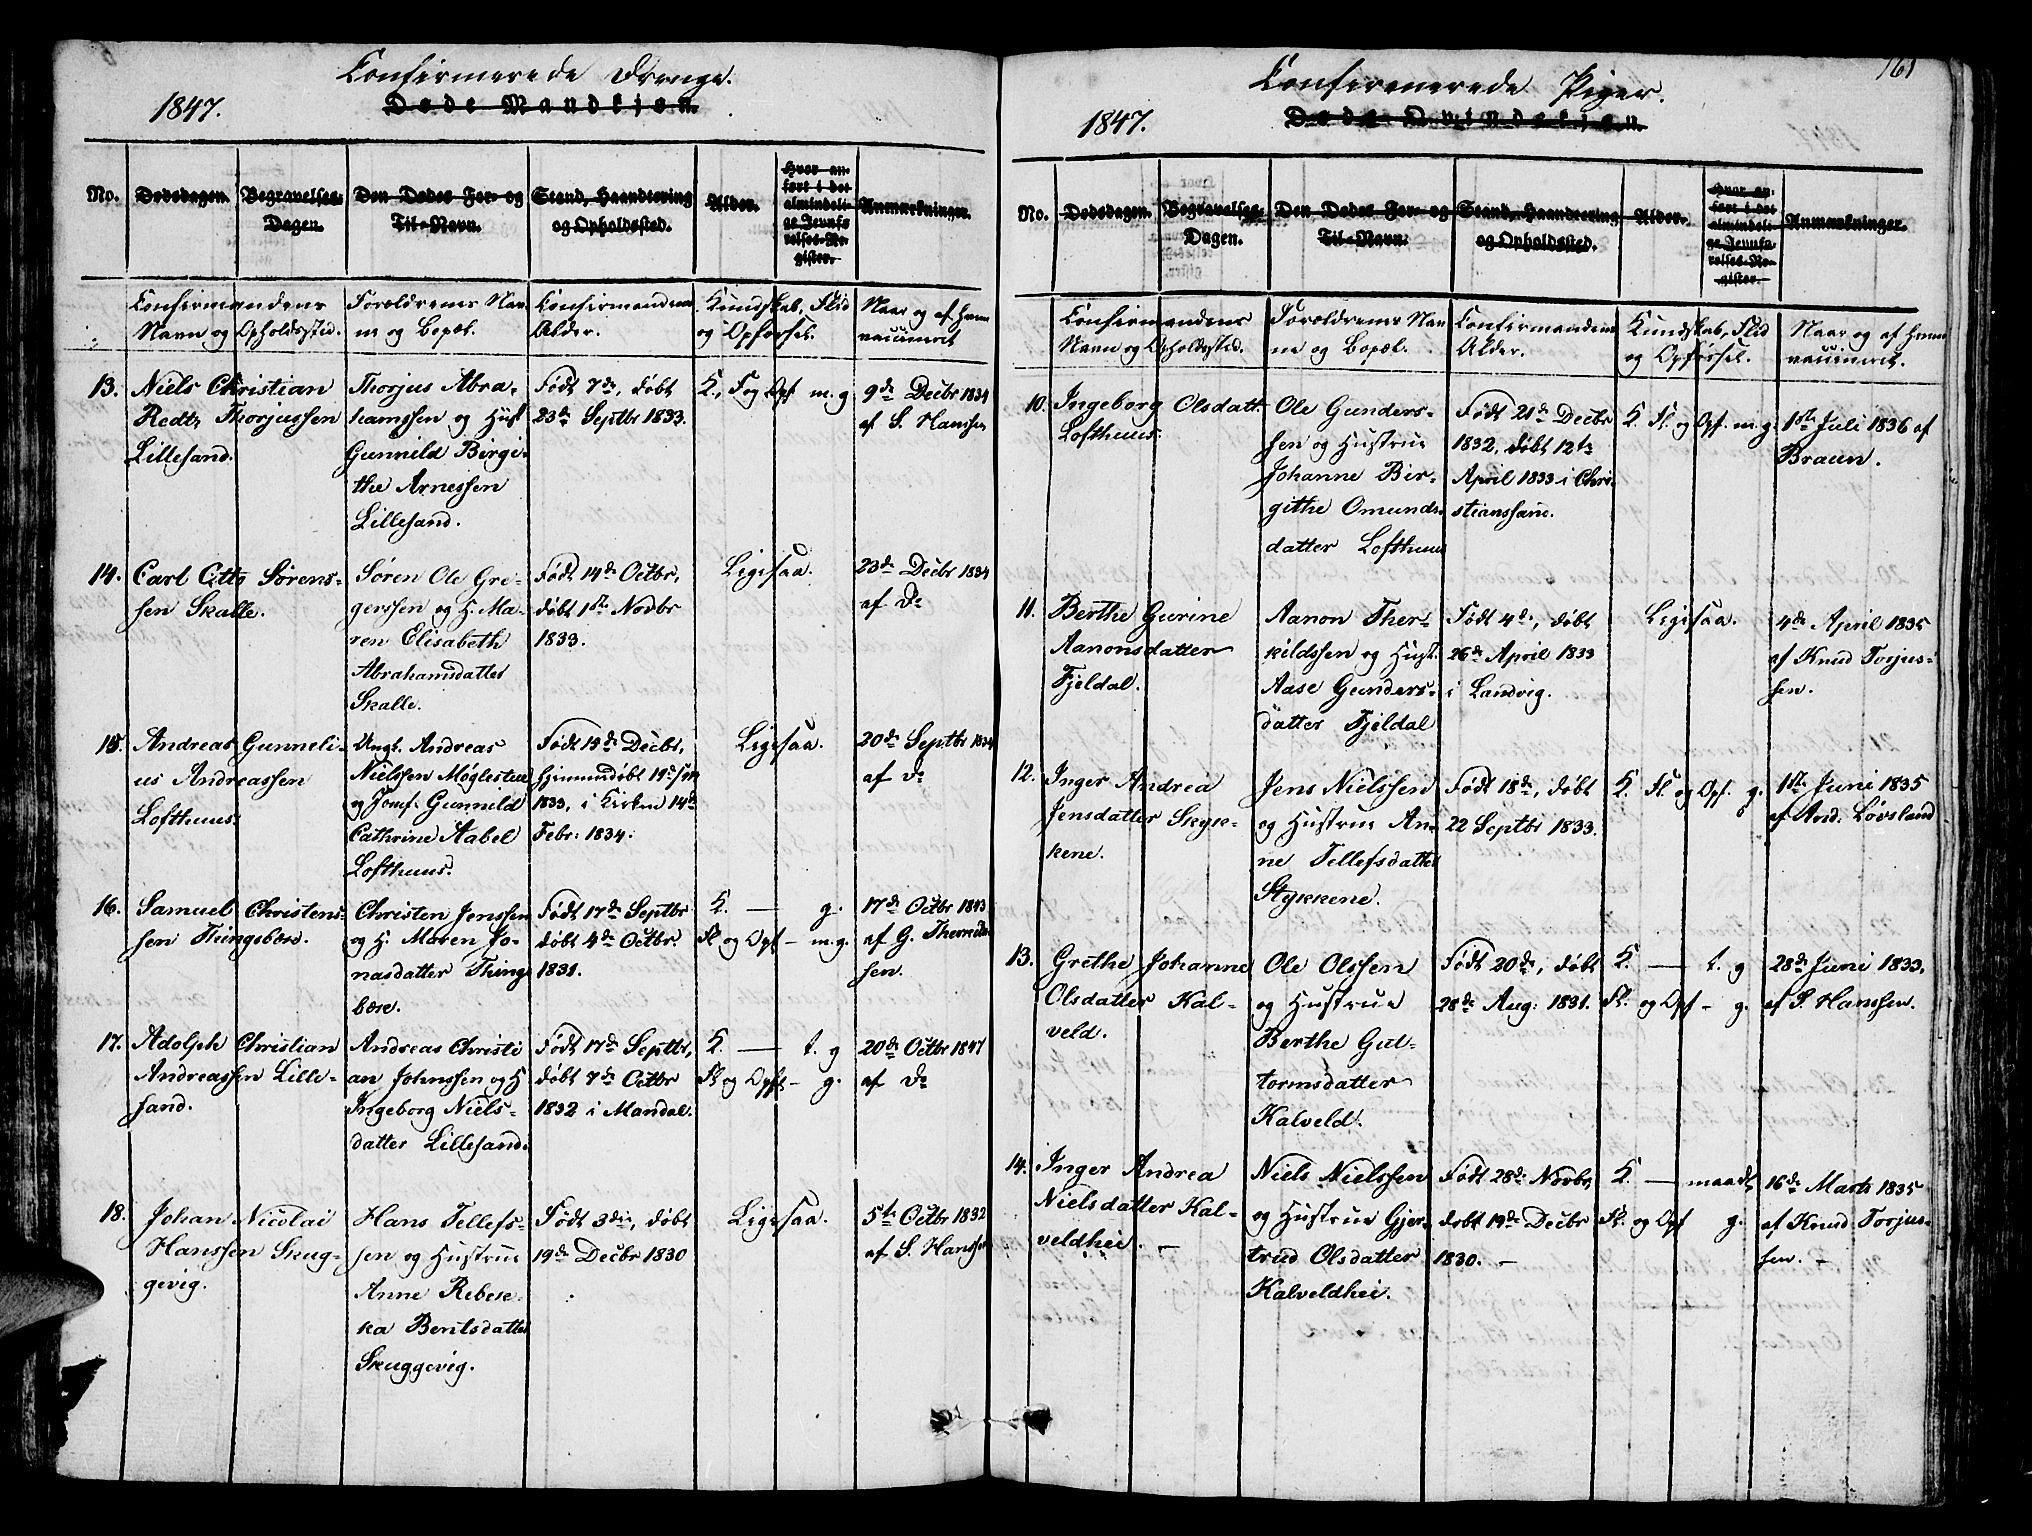 Confirmerede Drenge.
1847.
Døde Mandkjøn.
No.
Dødsdagen.
Begravelses-
Dagen.
Den Dødes For- og
Til-Navn.
Stand, Haandtering
og Opholdssted.
Alder.
Hvor an-
ført i det
almindeli-
ge Jevnfø-
relses-Re-
gister.
Anmærkninger.
Confirmandens
Navn og Opholdssted.
Forældrenes Nav-
ne og Bopæl.
Confirmandens
Alder.
Kundskab, Flid
og Opførsel.
Naar og af hvem
vaccineret
13.
Niels Christian
Redtz Thorjussen
Lillesand.
Thorjus Abra-
hamssen og Hust
Gunnild Birgi-
the Arnessen
Lillesand.
Født 7de, døbt
23de Septbr 1833.
K., F og Opf m.g
9de Decbr 1834
af S. Hanssen
14.
Carl Otto Sørens-
sen Skalle.
Søren Ole Gre-
gerssen og H. Ma-
ren Elisabeth
Abrahamsdatter
Skalle.
Født 14de Octbr,
døbt 1ste Novbr
1833.
Ligesaa.
23de Decbr 1834
af Do
15.
Andreas Gunneli-
us Andreassen
Lofthuus.
Ungk. Andreas
Nielssen Møglestue
og Jomf. Gunnild
Cathrine Aabel
Lofthuus.
Født 15de Decbr,
hjemmedøbt 19de s.m
1833, i Kirken 14de
Febr: 1834.
Ligesaa.
20de Septbr 1834
af Do
16.
Samuel Christens-
sen Thingsbøe.
Christen Jenssen
og H. Maren Jo-
nasdatter Things
bøe.
Født 17de Septbr
døbt 4de Octbr.
1831.
K. — g.
Fl og Opf – m.g.
17de Octbr 1843
af G.
sen.
17.
Adolph Christian
Andreassen Lille-
sand.
Andreas Christi
an Johnssen og H
Ingeborg Niels-
datter Lillesand.
Født 17de Septbr,
døbt 7de Octbr
1832 i Mandal.
K. — t. g
Fl og Opf – g.
20de Octbr 1847
af Do
18.
Johan Nicolai
Hanssen Skug-
gevig.
Hans Tellefs-
sen og Hustrue
Anne Rebek-
ka Bentsdatter
Skuggevig.
Født 3die, døbt
19de Decbr 1830
Ligesaa.
5te Octbr 1832
af S. Hanssen
161
Confirmerede Piger.
1847.
Døde Qvindekjøn.
No.
Dødsdagen.
Begravelses-
Dagen.
Den Dødes For- og
Til-Navn.
Stand, Haandtering
og Opholdssted.
Alder.
Hvor an-
ført i det
almindeli-
ge Jevnfø-
relses-Re-
gister.
Anmærkninger.
Confirmandens
Navn og Opholdssted.
Forældrenes Nav
ne og Bopæl.
Confirmandens
Alder.
Kundskab, Flid
og Opførsel.
Naar og af hvem
vaccineret.
10.
Ingeborg Olsdatt.
Lofthuus.
Ole Gunders-
sen og Hustrue
Johanne Bir-
githe Omunds-
datter Lofthuus
Født 21de Decbr
1832, døbt 12te
April 1833 i Chri-
stianssand.
K. Fl. og Opf. m.g.
1ste Juli 1836 af
Braun.
11.
Berthe Gurine
Aanonsdatter
Fjeldal.
Aanon Ther-
kildssen og Hust.
Aase Gunders-
datter Fjeldal
Født 4de, døbt
26de April 1833
i Landvig.
Ligesaa.
4de April 1835
af Knud Torjus-
sen.
12.
Inger Andrea
Jensdatter Styk-
kene.
Jens Nielssen
og Hustrue An-
ne Tellefsdatter
Stykkene.
Født 18de, døbt
22 Septbr 1833.
K. Fl. og Opf. g.
1ste Juni 1835
af And: Løvsland
13.
Grethe Johanne
Olsdatter Kal-
veld.
Ole Olssen
og Hustrue
Berthe Gut-
tormsdatter
Kalveld.
Født 20de, døbt
28de Aug: 1831.
K. — t. g
Fl. og Opf – g.
28de Juni 1833.
af S. Hanssen.
14.
Inger Andrea
Nielsdatter Kal-
veldhei. –
Niels Nielssen
og Hustrue Gjer-
trud Olsdatter
Kalveldhei.
Født 28de Novbr,
døbt 19de Decbr
1830. –
K. — maadt
Fl. og Opf g.
16de Marts 1835
af Knud Torjus-
sen. –